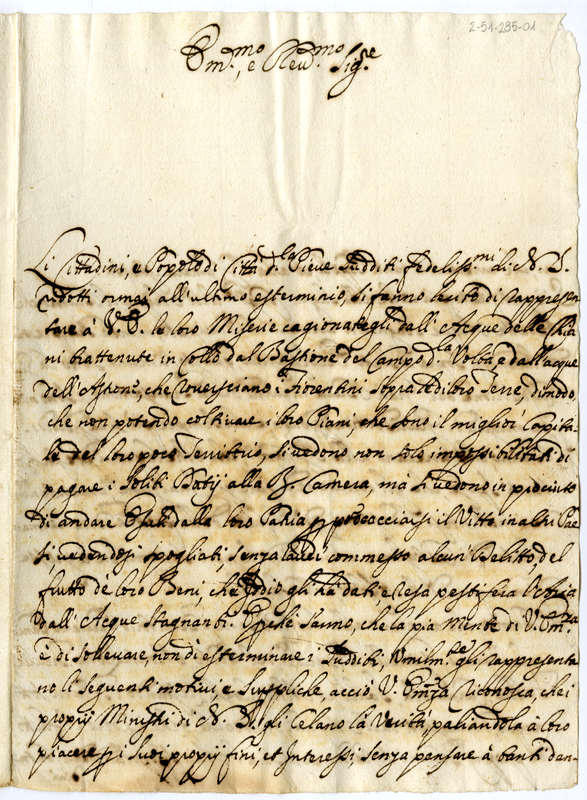 2-51-285-01
Em.mo, e Reu.mo Sig.re
Li Cittadini, e Popolo di Città d.la Pieve Sudditi fedeliss.mi di N. S.
ridotti ormai all'ultimo esterminio, si fanno lecito di rappresen-
tare à V. E. le loro Miserie cagionategli dall'Acque delle Chia-
ni trattenute in collo dal Bastione del Campo d.la Volta, e dall'acque
dell'Astrone, che rouersciano i Fiorentini sopra le di loro Terre, di modo
che non potendo coltiuare i loro Piani, che sono il miglior Capita-
le del loro poco Territorio, si vedono non solo impossibilitati di
pagare i soliti Datij alla R. Camera, mà si vedono in procinto
di andare esuli dalla loro Patria p procacciarsi il Vitto in altri Pae
si, vedendosi spogliati, senza hauer commesso alcun Delitto, del
frutto de loro Beni, che Iddio gli hà dati, e resa pestifera l'aria
dall'Acque stagnanti. E perche sanno, che la pia Mente di V. Em.za
è di solleuare, non di esterminare i Sudditi, Vmilm.te gli rappresenta
no li seguenti motiui, e suppliche acciò V. Em.za riconosca, che i
proprij Ministri di N. S. gli celano la Verità, paliandola à loro
piacere p i suoi proprij fini, et Interessi senza pensare à tanti dan-